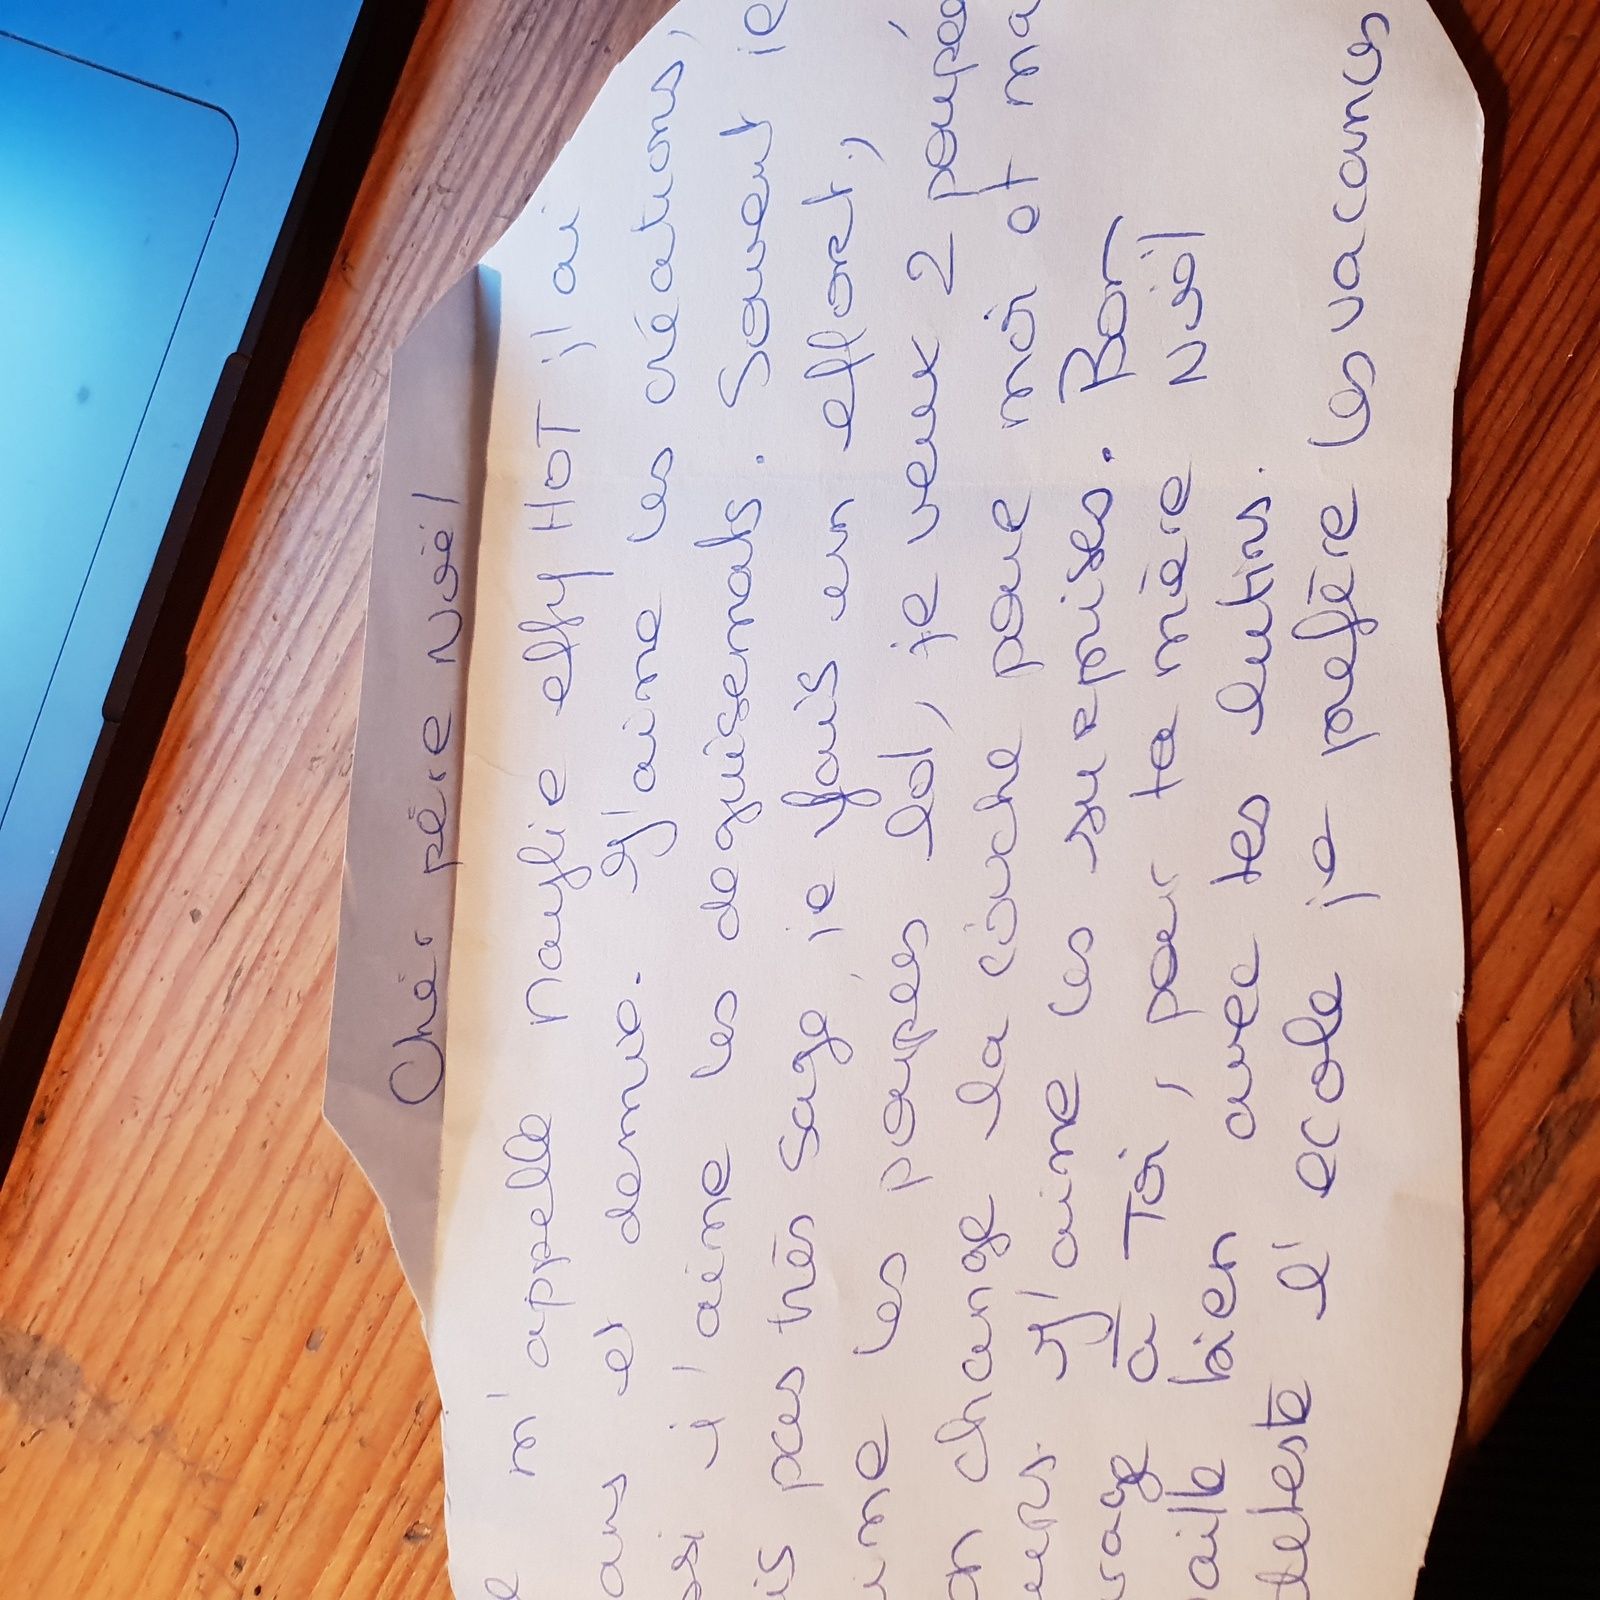 Chér pére Noél
m'appelle maylie effy HOT j'ai
ans et demie. J'aime les créations,
j'aime les deguisemats. Souvent je
pas trés sage, je fais en effort,
les poupées lol, je veux 2 poupée
change la couche poue moi et ma
J'aime les sueprises. Bon
a Toi, pour ta mère Noël
bien avec tes lutins.
deteste l'ecole je prefére les vacances